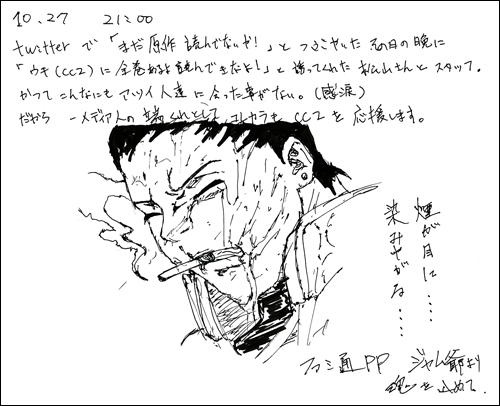 10.27 21:00
twitterで「まだ原作読んでないや!」とつぶやいたその日の晩に
「ウチ(CC2)に全巻あるよ読んできなよ!」と誘ってくれた松山さんとスタッフ。
かつてこんなにもアツイ人達に会った事がない。(感涙)
だから 一メディア人の端くれとして、コレカラも CC2を応援します。
煙が目に……
染みやがる……
ファミ通PP ジャム爺より
魂を込めて